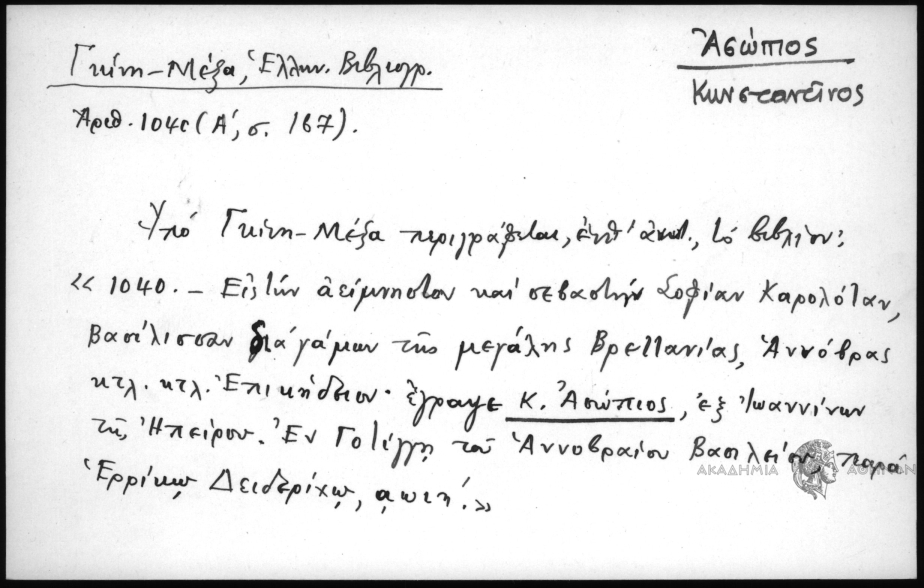 Ἀσώπιος
Κωνσταντῖνος
Γκίνη-Μέξα, Ἑλλην. Βιβλιογρ.
Ἀριθ. 1040 (Α΄, σ. 167).
Ὑπό Γκίνη-Μέξα περιγράφεται, ἐνθ' ἀνωτ., τό βιβλίον:
«1040. – Εἰς τήν ἀείμνηστον καί σεβαστήν Σοφίαν Καρολόταν,
βασίλισσαν διά γάμων τῆς μεγάλης Βρεττανίας, Ἀννόβρας
κτλ. κτλ. Ἐπικήδειον· ἔγραψε Κ. Ἀσώπιος, ἐξ Ἰωαννίνων
τῆς Ἠπείρου. Ἐν Γοτίγγῃ τοῦ Ἀννοβραίου Βασιλείου, παρά
Ἑρρίκῳ Δειδερίχῳ, αωιή.»
ΑΚΑΔΗΜΙΑ ΑΘΗΝΩΝ